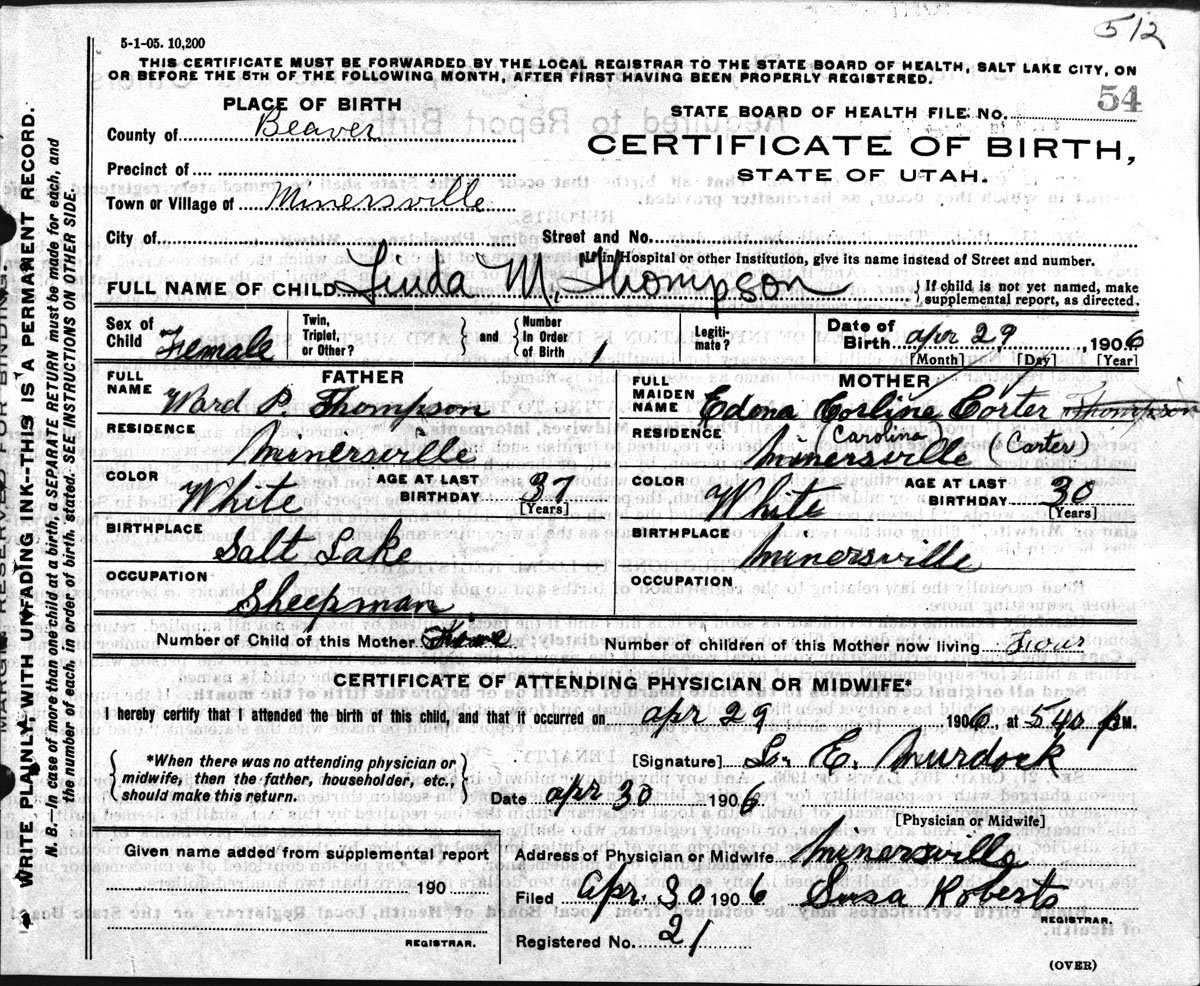 512
5-1-05. 10,200
THIS CERTIFICATE MUST BE FORWARDED BY THE LOCAL REGISTRAR TO THE STATE BOARD OF HEALTH, SALT LAKE CITY, ON
OR BEFORE THE 5TH OF THE FOLLOWING MONTH, AFTER FIRST HAVING BEEN PROPERLY REGISTERED.
54
PLACE OF BIRTH
STATE BOARD OF HEALTH FILE No.
County of Beaver
CERTIFICATE OF BIRTH,
Precinct of
STATE OF UTAH.
Town or Village of Minersville
City of
Street and No.
If in Hospital or other Institution, give its name instead of Street and number.
FULL NAME OF CHILD Linda M. Thompson
If child is not yet named, make
supplemental report, as directed.
Sex of Child Female
Twin, Triplet, or Other?
and
Number In Order of Birth 1
Legiti- mate?
Date of Birth Apr 29, 1906
[Month] [Day] [Year]
FATHER
FULL NAME Ward P. Thompson
RESIDENCE Minersville
COLOR White
AGE AT LAST BIRTHDAY 37
[Years]
BIRTHPLACE Salt Lake
OCCUPATION Sheepman
MOTHER
FULL MAIDEN NAME Edona Corline Corter Thompson
Carolina
RESIDENCE Minersville (Carter)
COLOR White
AGE AT LAST BIRTHDAY 30
[Years]
BIRTHPLACE Minersville
OCCUPATION
Number of Child of this Mother Five
Number of children of this Mother now living Four
CERTIFICATE OF ATTENDING PHYSICIAN OR MIDWIFE*
I hereby certify that I attended the birth of this child, and that it occurred on Apr 29 1906, at 540 P M.
*When there was no attending physician or
midwife, then the father, householder, etc.,
should make this return.
[Signature] L. E. Murdock
Date Apr 30 1906
[Physician or Midwife]
Given name added from supplemental report
190
REGISTRAR.
Address of Physician or Midwife Minersville
Filed Apr. 30 1906 Susa Roberts
REGISTRAR.
Registered No. 21
(OVER)
WRITE PLAINLY, WITH UNFADING INK--THIS IS A PERMANENT RECORD.
N. B.—In case of more than one child at a birth, a SEPARATE RETURN must be made for each, and
the number of each, in order of birth, stated. SEE INSTRUCTIONS ON OTHER SIDE.